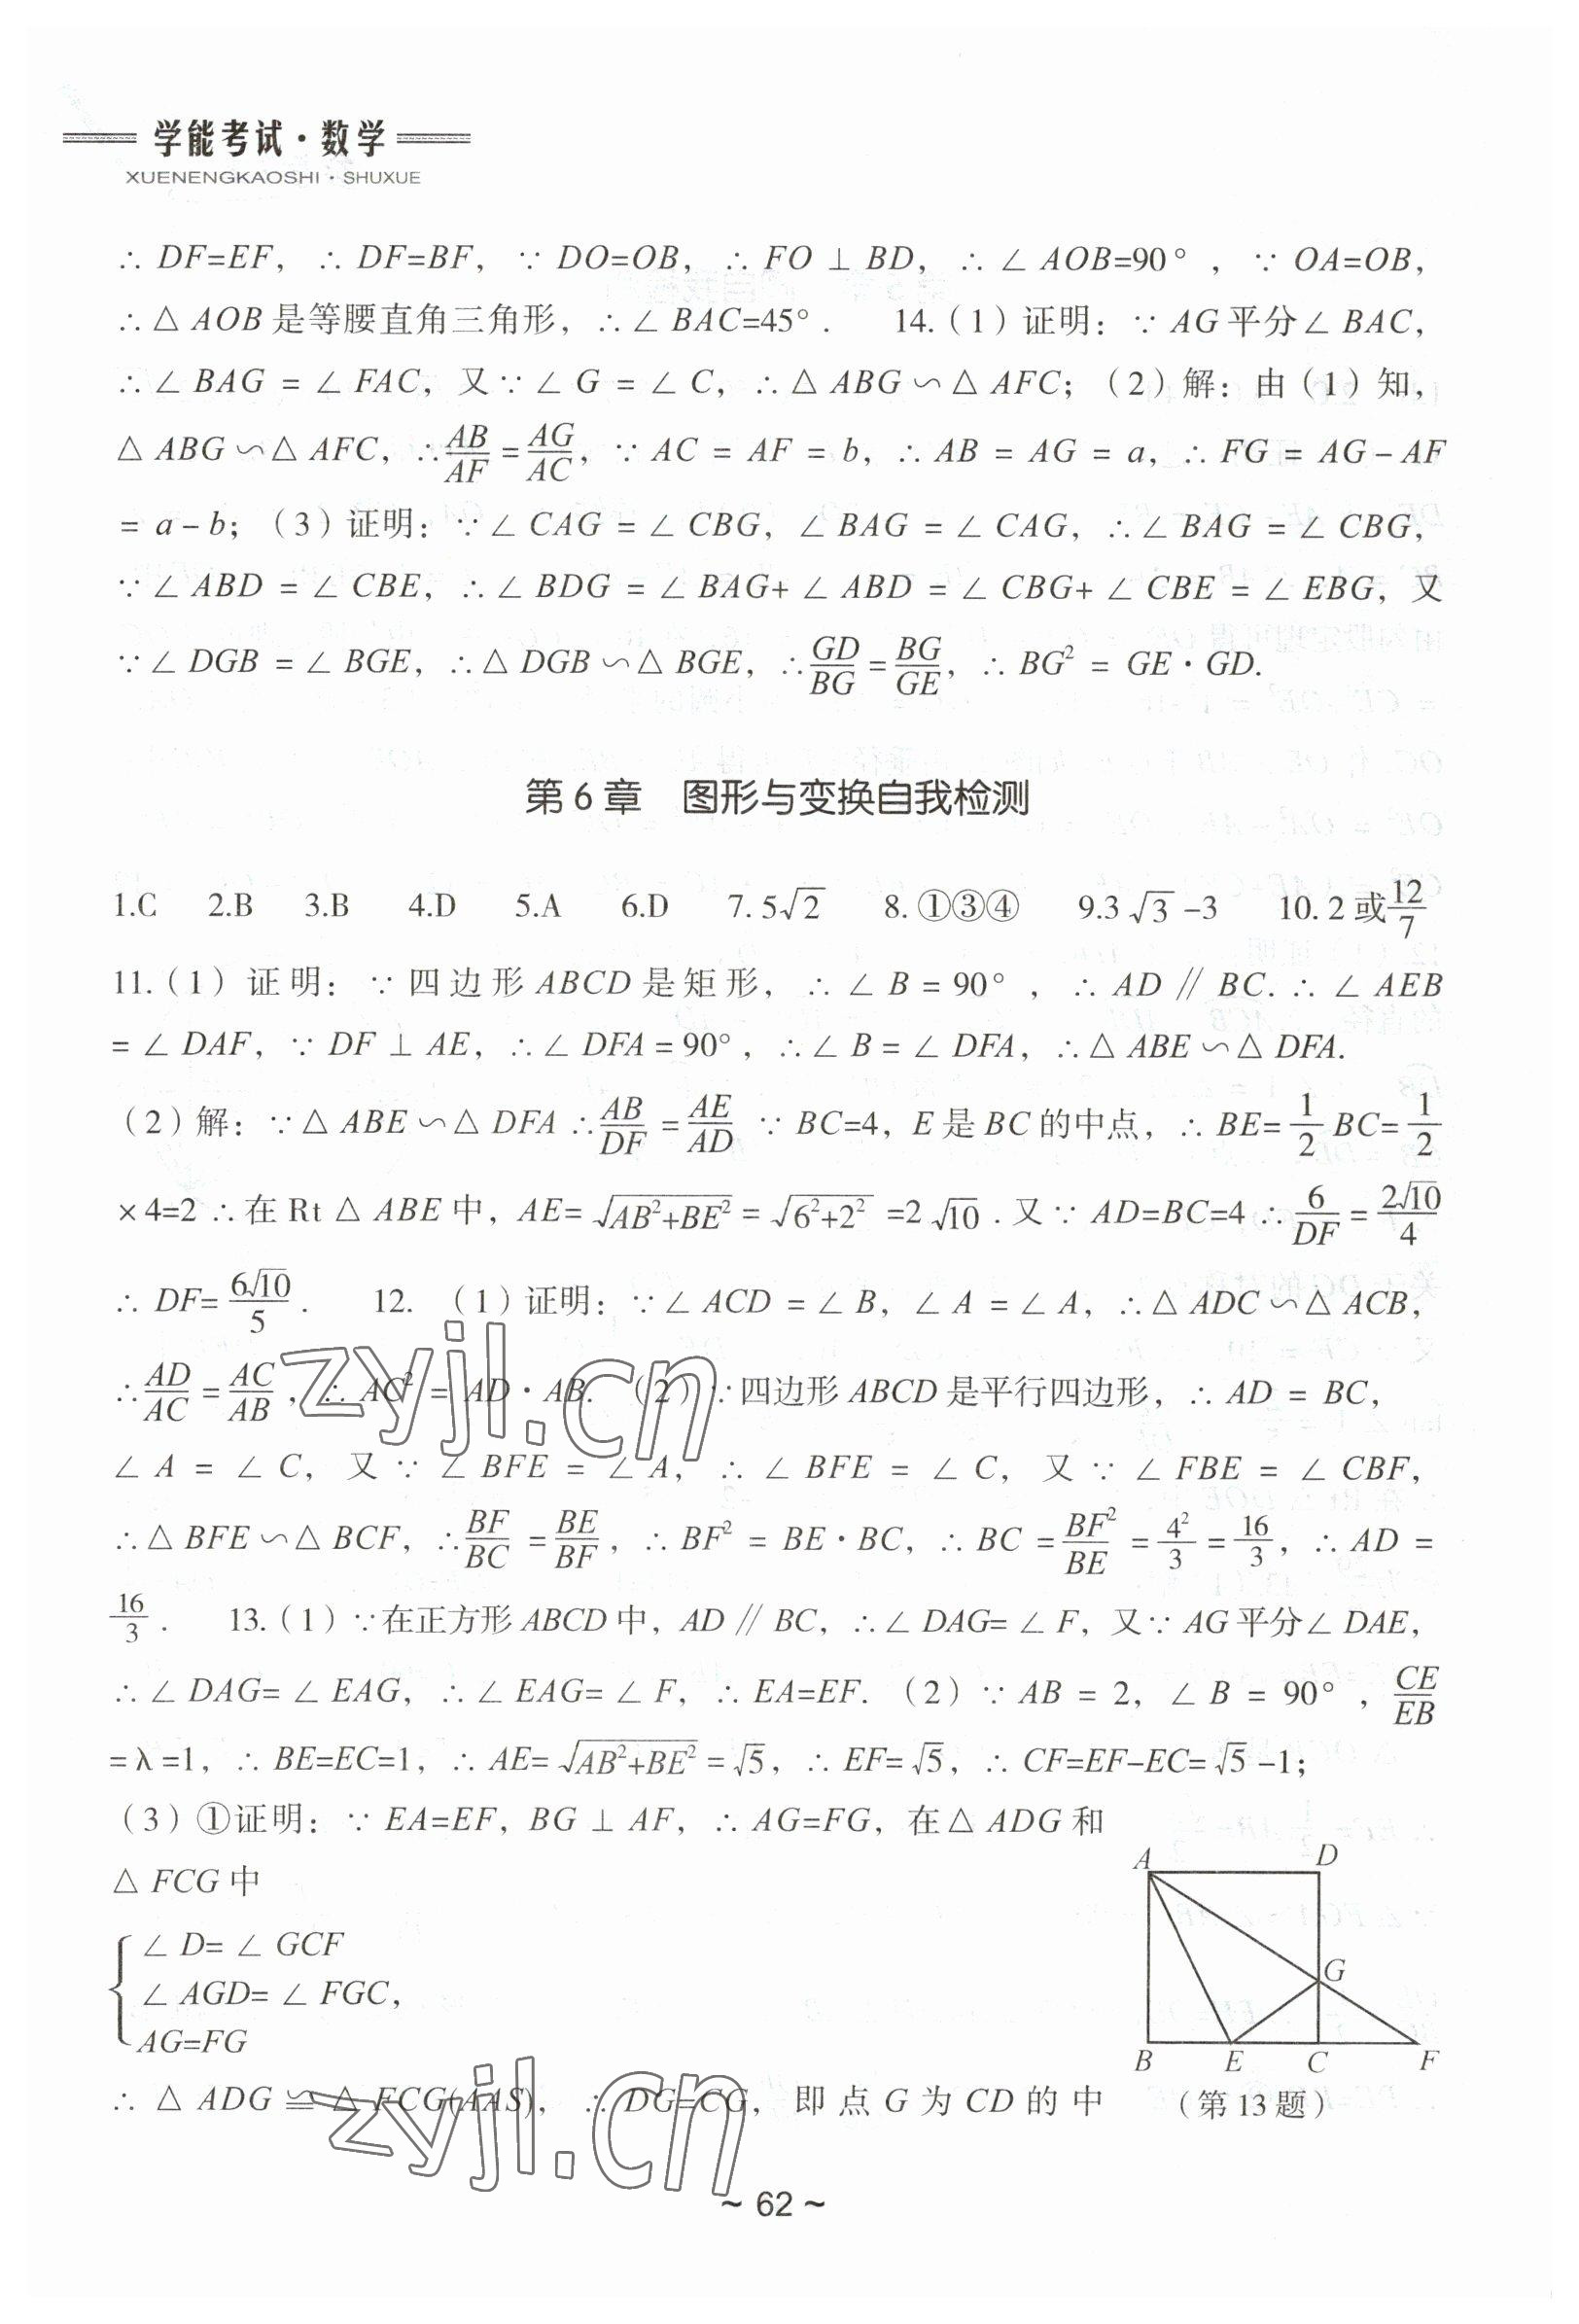 学能考试·数学
XUENENGKAOSHI·SHUXUE
∴ DF=EF, ∴ DF=BF, ∵ DO=OB, ∴ FO⊥BD, ∴∠AOB=90°, ∵ OA=OB,
∴△AOB是等腰直角三角形, ∴∠BAC=45°. 14.(1)证明: ∵ AG平分∠BAC,
∴∠BAG=∠FAC, 又∵∠G=∠C, ∴△ABG∽△AFC; (2)解: 由(1)知,
△ABG∽△AFC, ∴AB/AF=AG/AC, ∵ AC=AF=b, ∴ AB=AG=a, ∴ FG=AG-AF
=a-b; (3)证明: ∵∠CAG=∠CBG, ∠BAG=∠CAG, ∴∠BAG=∠CBG,
∵∠ABD=∠CBE, ∴∠BDG=∠BAG+∠ABD=∠CBG+∠CBE=∠EBG, 又
∵∠DGB=∠BGE, ∴△DGB∽△BGE, ∴GD/BG=BG/GE, ∴ BG²=GE·GD.
第6章 图形与变换自我检测
1.C 2.B 3.B 4.D 5.A 6.D 7.5√2 8.①③④ 9.3√3-3 10.2或12/7
11.(1)证明: ∵四边形ABCD是矩形, ∴∠B=90°, ∴ AD∥BC. ∴∠AEB
=∠DAF, ∵ DF⊥AE, ∴∠DFA=90°, ∴∠B=∠DFA, ∴△ABE∽△DFA.
(2)解: ∵△ABE∽△DFA ∴AB/DF=AE/AD ∵ BC=4, E是BC的中点, ∴ BE=1/2BC=1/2
×4=2 ∴在Rt△ABE中, AE=√(AB²+BE²)=√(6²+2²)=2√10. 又∵ AD=BC=4 ∴6/DF=2√10/4
∴ DF=6√10/5. 12. (1)证明: ∵∠ACD=∠B, ∠A=∠A, ∴△ADC∽△ACB,
∴AD/AC=AC/AB, ∴ AC²=AD·AB. (2)∵四边形ABCD是平行四边形, ∴ AD=BC,
∠A=∠C, 又∵∠BFE=∠A, ∴∠BFE=∠C, 又∵∠FBE=∠CBF,
∴△BFE∽△BCF, ∴BF/BC=BE/BF, ∴ BF²=BE·BC, ∴ BC=BF²/BE=4²/3=16/3, ∴ AD=
16/3. 13.(1)∵在正方形ABCD中, AD∥BC, ∴∠DAG=∠F, 又∵ AG平分∠DAE,
∴∠DAG=∠EAG, ∴∠EAG=∠F, ∴ EA=EF. (2)∵ AB=2, ∠B=90°, CE/EB
=λ=1, ∴ BE=EC=1, ∴ AE=√(AB²+BE²)=√5, ∴ EF=√5, ∴ CF=EF-EC=√5-1;
(3)①证明: ∵ EA=EF, BG⊥AF, ∴ AG=FG, 在△ADG和
△FCG中
{∠D=∠GCF
∠AGD=∠FGC,
AG=FG
∴△ADG≌△FCG(AAS), ∴ DG=CG, 即点G为CD的中
A D
G
B E C F
(第13题)
zyjl.cn
zyjl.cn
~62~